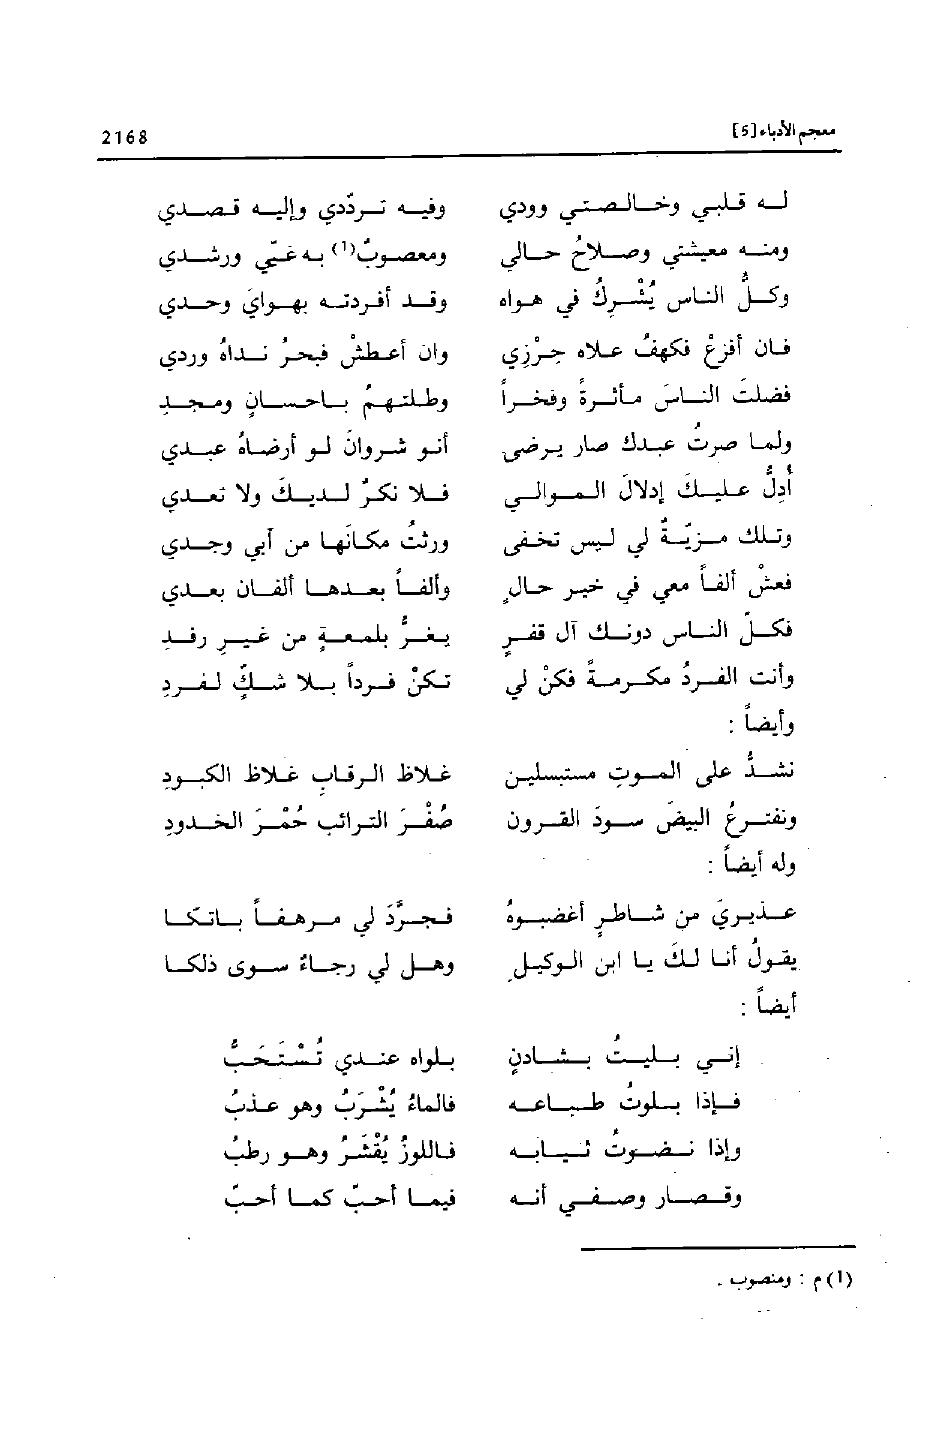 معجم الأدباء [5] 2168
لـه قـلبي وخـالـصتي وودي وفيـه تـردّدي وإليـه قـصـدي
ومنـه معيشتي وصـلاحُ حـالي ومعصوبٌ(1) بـه غيّي ورشـدي
وكـلّ النـاسِ يُشْـركُ في هـواه وقـد أفردتـه بهـوايَ وحـدي
فـان أفزعْ فكهفُ عـلاه حِرْزي وان أعـطشْ فبحـرُ نـداهُ وردي
فضلتَ النـاسَ مـأثـرةً وفخـراً وطـلتهـمُ بـاحـسـانٍ ومـجـدِ
ولمـا صرتُ عبـدك صار يرضى أنـو شـروانَ لـو أرضـاهُ عبـدي
أدلُّ عليـكَ إدلالَ المـوالـي فـلا تكـرٌ لـديـكَ ولا تعـدي
وتلك مـزيّـةٌ لي ليس تخفى ورثتُ مكـانَها من أبي وجـدي
فعشْ ألفـاً معي في خيـر حـالٍ وألفـاً بعـدهـا ألفـان بعـدي
فكـلّ النـاس دونـك آل قفـرٍ يغـرُّ بلمعـةٍ من غيـر رفـد
وأنت الفـردُ مكـرمـةً فكنْ لي تـكنْ فـرداً بـلا شـكٍّ لفـردِ
وأيضاً :
نشـدُّ على المـوت مستبسلين غـلاظَ الرقابِ غـلاظَ الكبـود
ونفتـرعُ البيضَ سـودَ القـرون صُفْـرَ التـرائب حُمْـرَ الخـدودِ
وله أيضاً :
عـذيـري من شـاطرٍ أغضبـوهُ فجـرّدَ لي مـرهفـاً بـاتكـا
يقـولُ أنـا لكَ يا ابن الوكيـلِ وهـل لي رجـاءٌ سـوى ذلكـا
أيضاً :
إنـي بـليـتُ بـشـادنٍ بلواه عنـدي تُـسْتَحَبُّ
فـإذا بلوتُ طبـاعـه فالماءُ يُشْرَبُ وهو عـذبُ
وإذا نـضـوتُ ثيـابـه فـاللوزُ يُقْشَـرُ وهـو رطبُ
وقـصـار وصـفـي أنـه فيمـا أحبّ كمـا أحبّ
(1) م : ومنصوب .